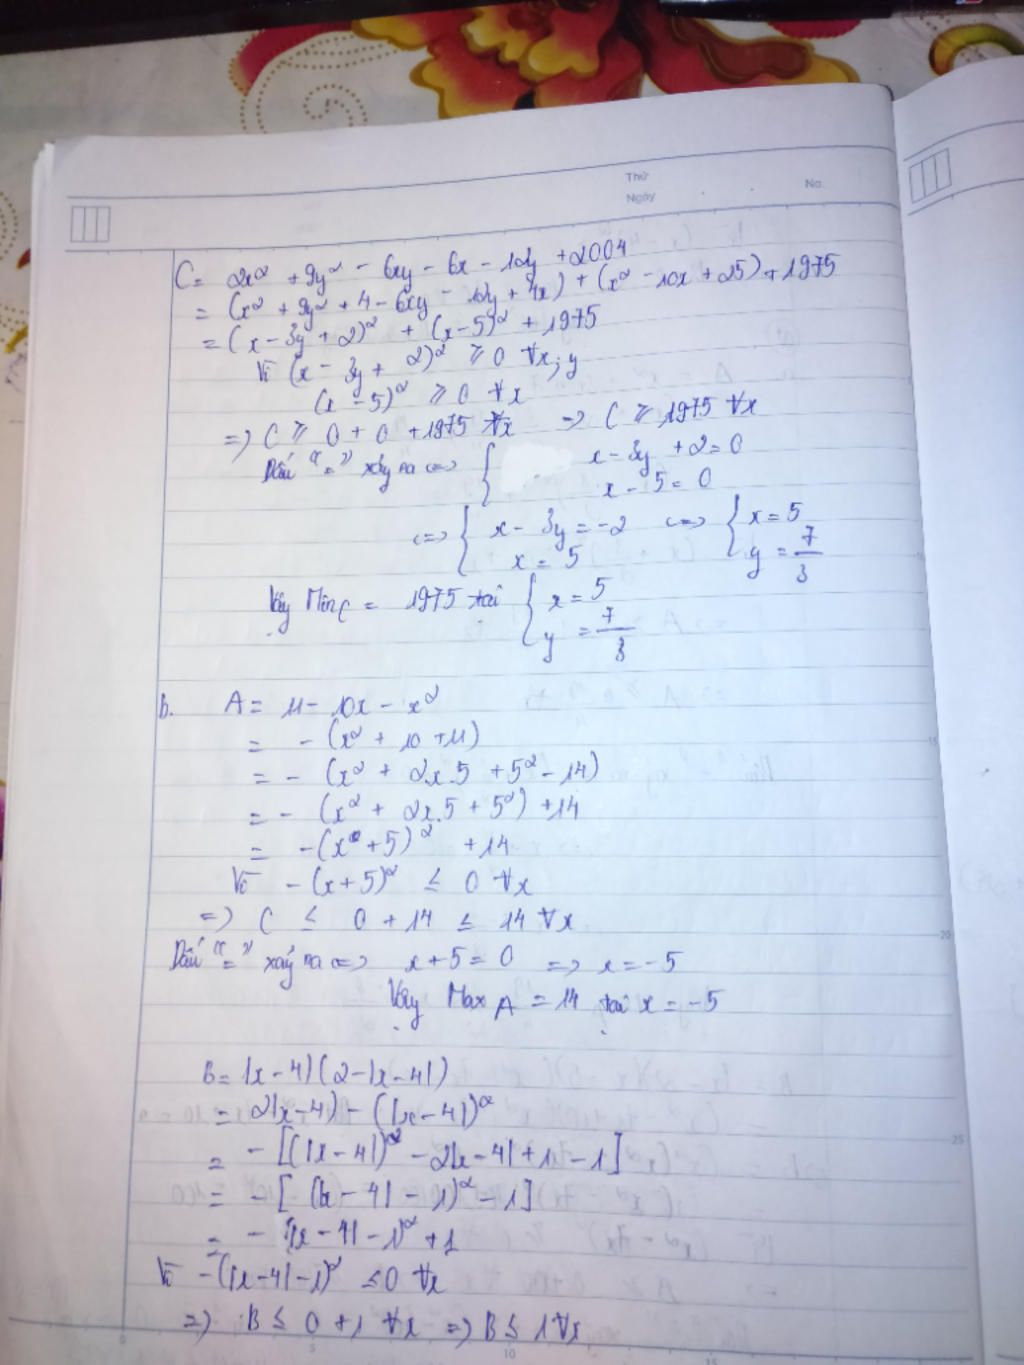 Thứ
Ngày
No.
C = 2x² + 9y² - 6xy - 6x - 12y + 2004
= (x² + 9y² + 4 - 6xy - 12y + 4x) + (x² - 10x + 25) + 1975
= (x - 3y + 2)² + (x - 5)² + 1975
Vì (x - 3y + 2)² ≥ 0 ∀x;y
(x - 5)² ≥ 0 ∀x
=> C ≥ 0 + 0 + 1975 ∀x => C ≥ 1975 ∀x
Dấu "=" xảy ra <=> { x - 3y + 2 = 0
x - 5 = 0
<=> { x - 3y = -2 <=> { x = 5
x = 5 y = 7/3
Vậy Min C = 1975 tại { x = 5
y = 7/3
b. A = 11 - 10x - x²
= - (x² + 10 + 11)
= - (x² + 2x.5 + 5² - 14)
= - (x² + 2x.5 + 5²) + 14
= -(x + 5)² + 14
Vì - (x + 5)² ≤ 0 ∀x
=> C ≤ 0 + 14 ≤ 14 ∀x
Dấu "=" xảy ra <=> x + 5 = 0 => x = -5
Vậy Max A = 14 tại x = -5
B = |x - 4|(2 - |x - 4|)
= 2|x - 4| - (|x - 4|)²
= - [(|x - 4|)² - 2|x - 4| + 1 - 1]
= - [(|x - 4| - 1)² - 1]
= - (|x - 4| - 1)² + 1
Vì - (|x - 4| - 1)² ≤ 0 ∀x
=> B ≤ 0 + 1 ∀x => B ≤ 1 ∀x
5
10
15
15
20
25